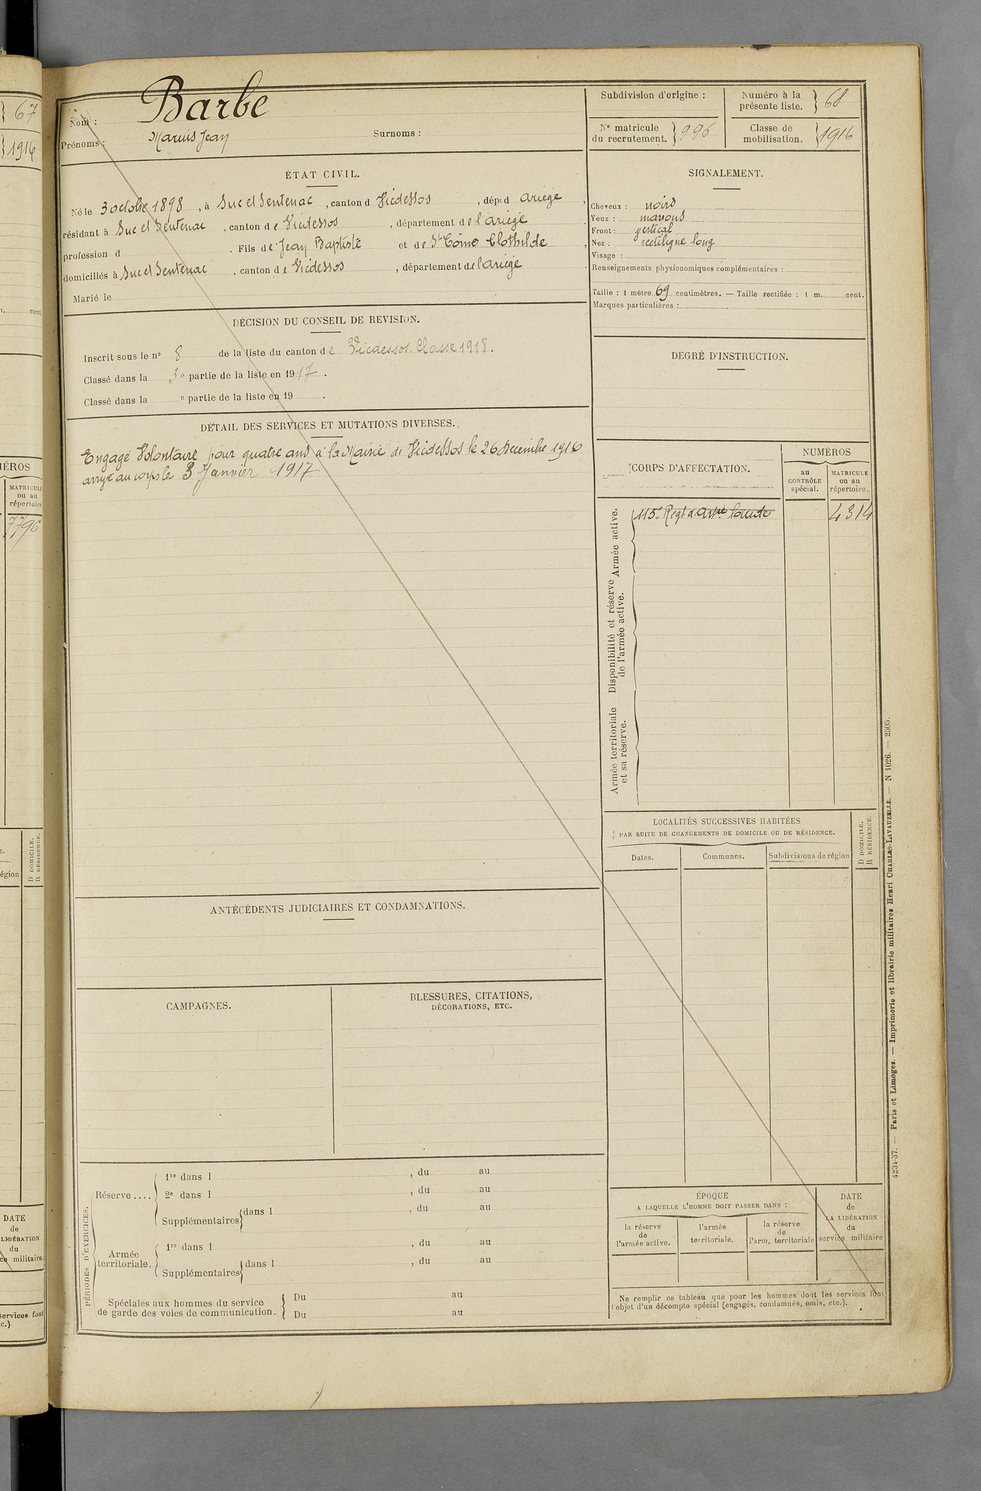 67
1916
Nom : Barbe
Prénoms : Marius Jean Surnoms :
Subdivision d'origine :
Numéro à la présente liste. } 68
N° matricule du recrutement. } 996
Classe de mobilisation. } 1916
ÉTAT CIVIL.
Né le 3 octobre 1898, à Suc et Sentenac, canton d Vicdessos, dép. d ariège,
résidant à Suc et Sentenac, canton de Vicdessos, département de l'ariège
profession d . Fils de Jean Baptiste et de Clothilde,
domiciliés à Suc et Sentenac, canton de Vicdessos, département de l'ariège
Marié le
SIGNALEMENT.
Cheveux : noirs
Yeux : marons
Front : vertical
Nez : rectiligne long
Visage :
Renseignements physionomiques complémentaires :
Taille : 1 mètre 69 centimètres. — Taille rectifiée : 1 m. cent.
Marques particulières :
DÉCISION DU CONSEIL DE REVISION.
Inscrit sous le n° 8 de la liste du canton de Vicdessos. Classe 1918.
Classé dans la 3e partie de la liste en 1917.
Classé dans la e partie de la liste en 19 .
DEGRÉ D'INSTRUCTION.
DÉTAIL DES SERVICES ET MUTATIONS DIVERSES.
Engagé Volontaire pour quatre ans à la Mairie de Vicdessos le 26 Décembre 1916
arrivé au corps le 3 Janvier 1917
CORPS D'AFFECTATION.
NUMÉROS
au CONTRÔLE spécial.
MATRICULE ou au répertoire.
Armée active.
115e Régt d'Artie lourde 4314
Disponibilité et réserve de l'armée active.
Armée territoriale et sa réserve.
NUMÉROS
MATRICULE
ou au
répertoire
7796
LOCALITÉS SUCCESSIVES HABITÉES
PAR SUITE DE CHANGEMENTS DE DOMICILE OU DE RÉSIDENCE.
D DOMICILE.
R RÉSIDENCE.
Dates. Communes. Subdivisions de région
ANTÉCÉDENTS JUDICIAIRES ET CONDAMNATIONS.
CAMPAGNES.
BLESSURES, CITATIONS,
DÉCORATIONS, ETC.
PÉRIODES D'EXERCICES.
Réserve.... 1re dans l , du au
2e dans l , du au
Supplémentaires dans l , du au
Armée territoriale. 1re dans l , du au
Supplémentaires dans l , du au
Spéciales aux hommes du service Du au
de garde des voies de communication. Du au
ÉPOQUE
A LAQUELLE L'HOMME DOIT PASSER DANS :
la réserve de l'armée active.
l'armée territoriale.
la réserve de l'arm. territoriale
DATE
de
LA LIBÉRATION
du
service militaire
Ne remplir ce tableau que pour les hommes dont les services font
l'objet d'un décompte spécial (engagés, condamnés, omis, etc.).
4234-37. — Paris et Limoges. — Imprimerie et librairie militaires Henri CHARLES-LAVAUZELLE. — N 1026. — 2505.